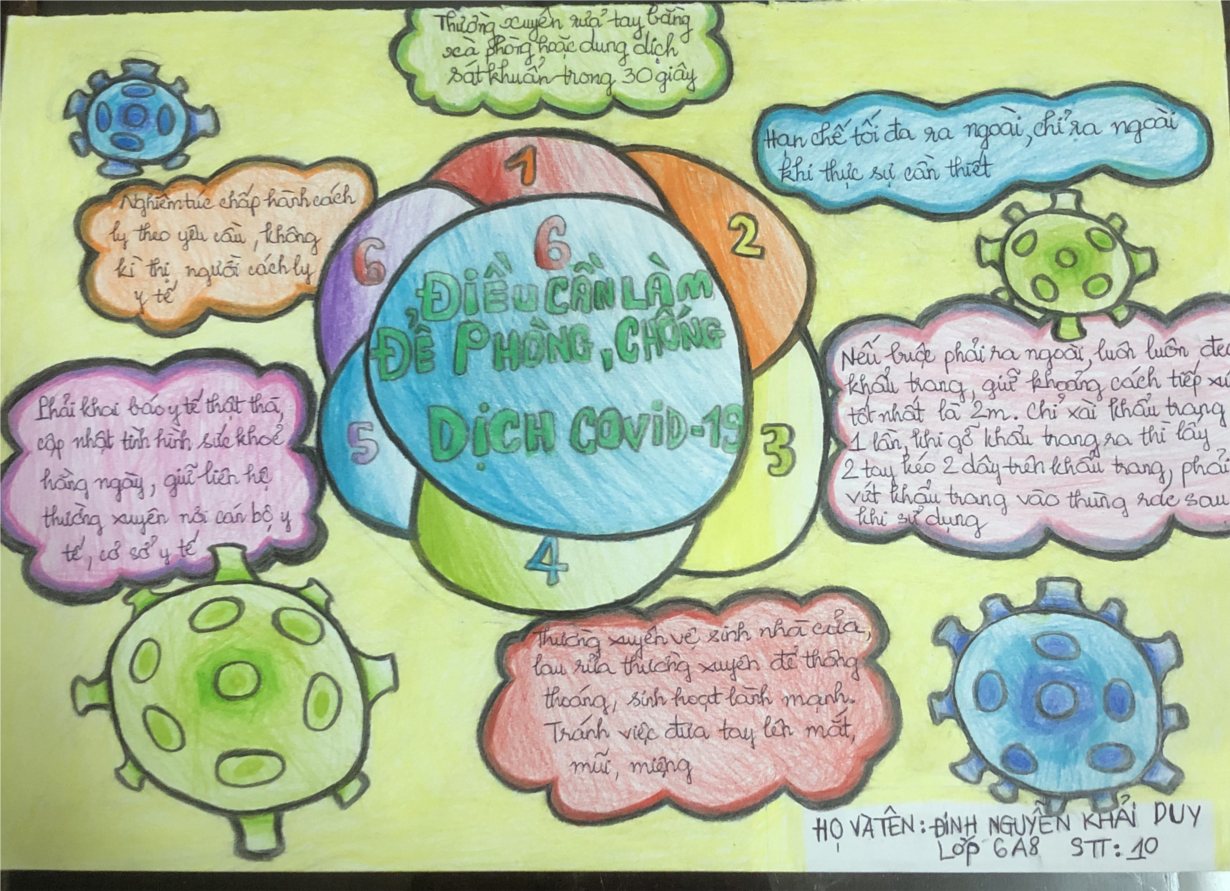 Thường xuyên rửa tay bằng
xà phòng hoặc dung dịch
sát khuẩn trong 30 giây
Hạn chế tối đa ra ngoài, chỉ ra ngoài
khi thực sự cần thiết
Nghiêm túc chấp hành cách
ly theo yêu cầu, không
kì thị người cách ly
y tế
1
2
3
4
5
6
6
ĐIỀU CẦN LÀM
ĐỂ PHÒNG, CHỐNG
DỊCH COVID-19
Nếu buộc phải ra ngoài, luôn luôn đeo
khẩu trang, giữ khoảng cách tiếp xú
tốt nhất là 2m. Chỉ xài khẩu trang
1 lần, khi gỡ khẩu trang ra thì lấy
2 tay kéo 2 dây trên khẩu trang, phải
vứt khẩu trang vào thùng rác sau
khi sử dụng
Phải khai báo y tế thật thà,
cập nhật tình hình sức khoẻ
hằng ngày, giữ liên hệ
thường xuyên với cán bộ y
tế, cơ sở y tế
Thường xuyên vệ sinh nhà cửa,
lau rửa thường xuyên để thông
thoáng, sinh hoạt lành mạnh.
Tránh việc đưa tay lên mắt,
mũi, miệng
HỌ VÀ TÊN: ĐINH NGUYỄN KHẢI DUY
LỚP 6A8 STT: 10